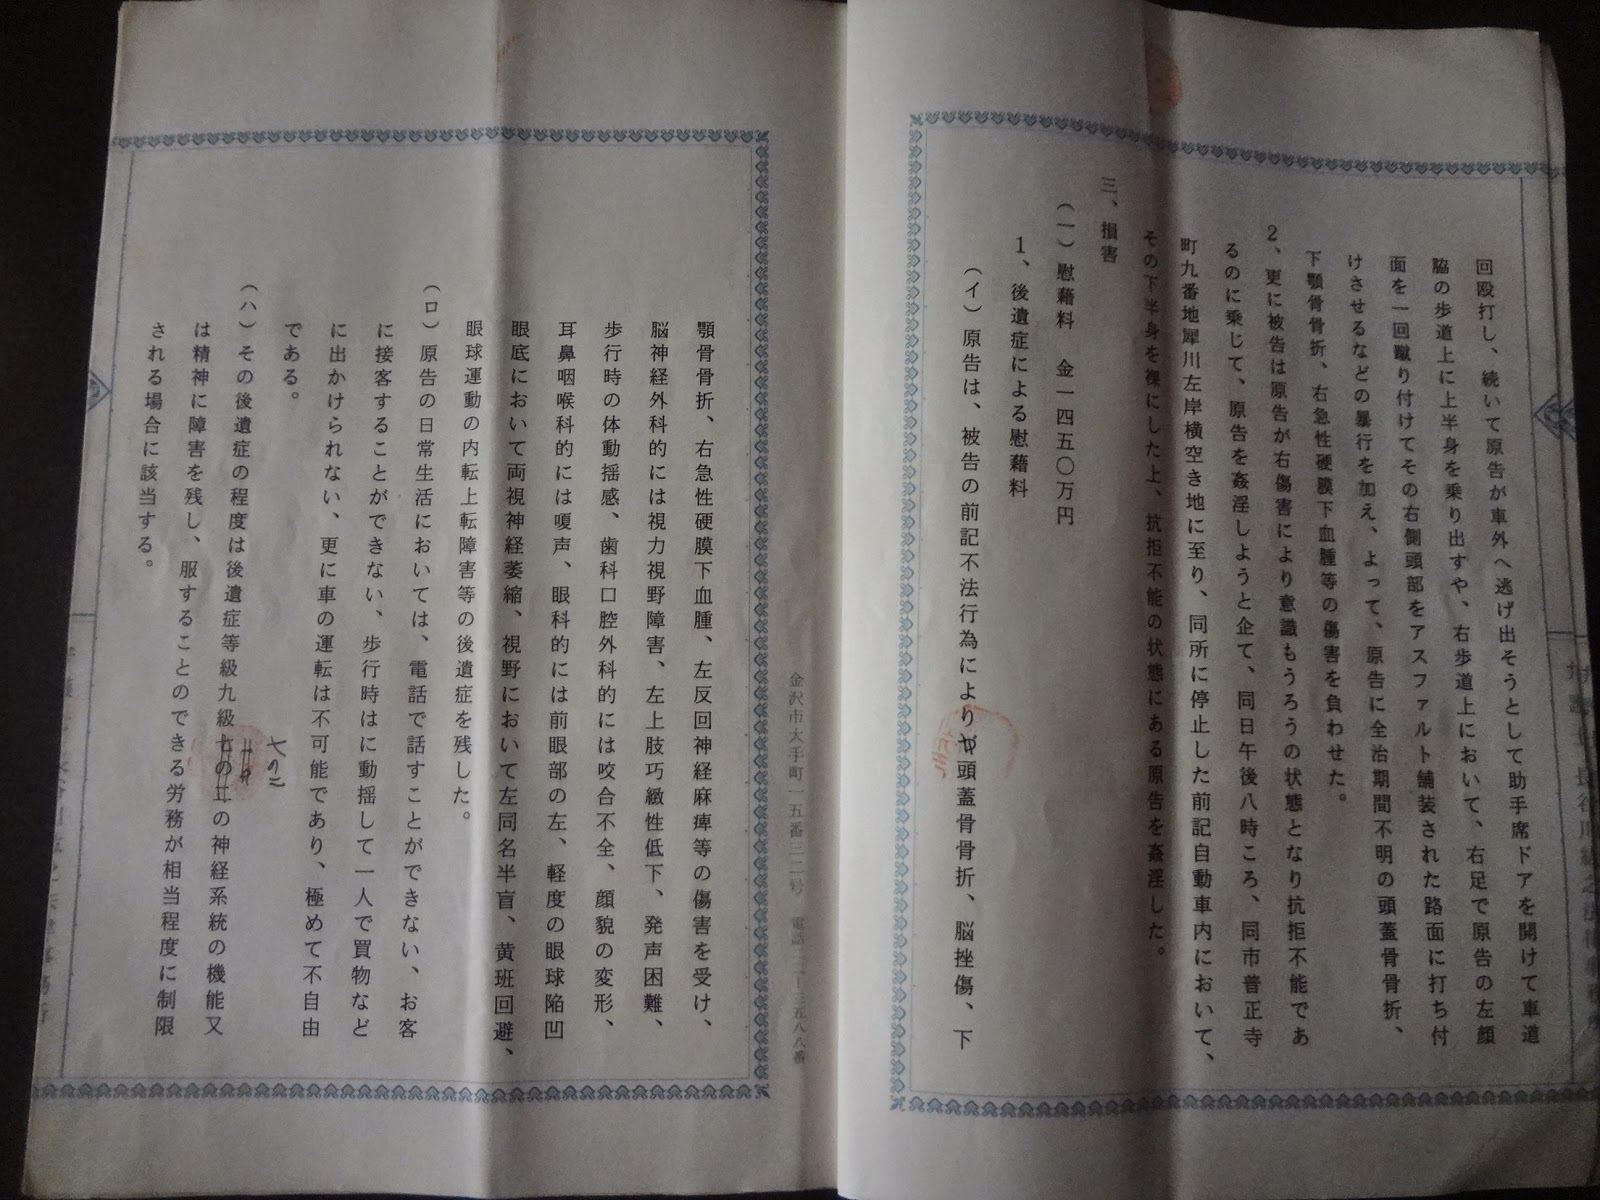 回殴打し、続いて原告が車外へ逃げ出そうとして助手席ドアを開けて車道
脇の歩道上に上半身を乗り出すや、右歩道上において、右足で原告の左顔
面を一回蹴り付けてその右側頭部をアスファルト舗装された路面に打ち付
けさせるなどの暴行を加え、よって、原告に全治期間不明の頭蓋骨骨折、
下顎骨骨折、右急性硬膜下血腫等の傷害を負わせた。
2、更に被告は原告が右傷害により意識もうろうの状態となり抗拒不能であ
るのに乗じて、原告を姦淫しようと企て、同日午後八時ころ、同市普正寺
町九番地犀川左岸横空き地に至り、同所に停止した前記自動車内において、
その下半身を裸にした上、抗拒不能の状態にある原告を姦淫した。
三、損害
(一)慰藉料 金一四五〇万円
1、後遺症による慰藉料
(イ)原告は、被告の前記不法行為により頭蓋骨骨折、脳挫傷、下
金沢市大手町一五番三二号 電話
顎骨骨折、右急性硬膜下血腫、左反回神経麻痺等の傷害を受け、
脳神経外科的には視力視野障害、左上肢巧緻性低下、発声困難、
歩行時の体動揺感、歯科口腔外科的には咬合不全、顔貌の変形、
耳鼻咽喉科的には嗄声、眼科的には前眼部の左、軽度の眼球陥凹
眼底において両視神経萎縮、視野において左同名半盲、黄斑回避、
眼球運動の内転上転障害等の後遺症を残した。
(ロ)原告の日常生活においては、電話で話すことができない、お客
に接客することができない、歩行時はに動揺して一人で買物など
に出かけられない、更に車の運転は不可能であり、極めて不自由
である。
七の二
(ハ)その後遺症の程度は後遺症等級九級の神経系統の機能又
は精神に障害を残し、服することのできる労務が相当程度に制限
される場合に該当する。